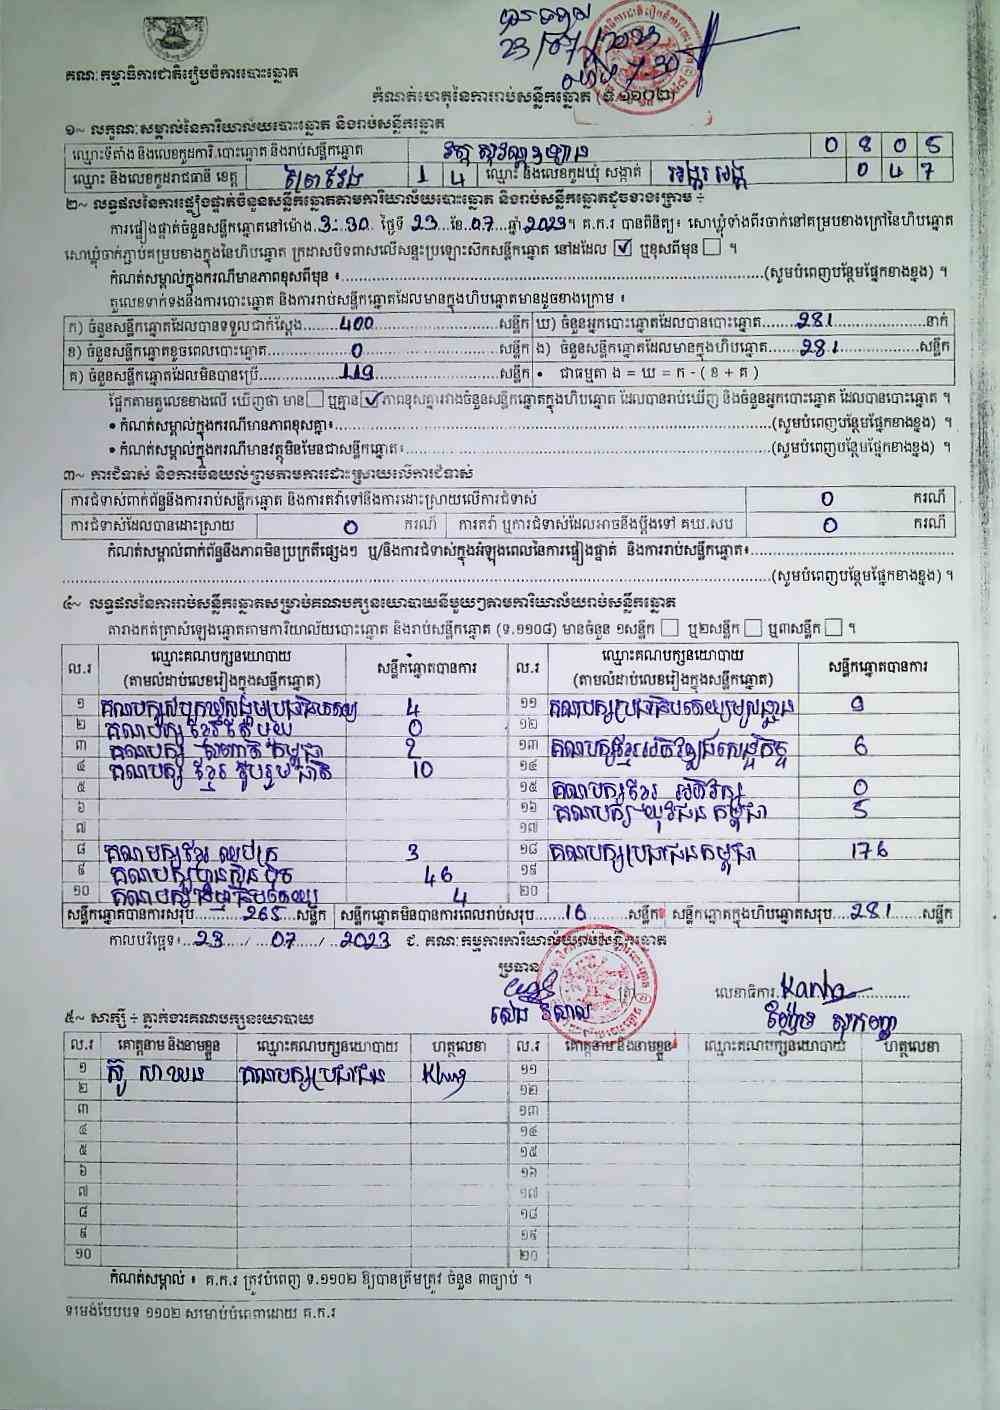 បានទទួល
23/07/2023
ម៉ោង 7:30
គណៈកម្មាធិការជាតិរៀបចំការបោះឆ្នោត
កំណត់ហេតុនៃការរាប់សន្លឹកឆ្នោត (ទ.១១០២)
១~ លក្ខណៈសម្គាល់នៃការិយាល័យបោះឆ្នោត និងរាប់សន្លឹកឆ្នោត
ឈ្មោះទីតាំង និងលេខកូដការិ.បោះឆ្នោត និងរាប់សន្លឹកឆ្នោត វត្ត 0805
ឈ្មោះ និងលេខកូដរាជធានី ខេត្ត ព្រៃវែង 14 ឈ្មោះ និងលេខកូដឃុំ សង្កាត់ 047
២~ លទ្ធផលនៃការផ្ទៀងផ្ទាត់ចំនួនសន្លឹកឆ្នោតតាមការិយាល័យបោះឆ្នោត និងរាប់សន្លឹកឆ្នោតដូចខាងក្រោម ÷
ការផ្ទៀងផ្ទាត់ចំនួនសន្លឹកឆ្នោតនៅម៉ោង 3:30 ថ្ងៃទី 23 ខែ 07 ឆ្នាំ 2023។ គ.ក.រ បានពិនិត្យ៖ សោឃ្លុំទាំងពីរចាក់នៅគម្របខាងក្រៅនៃហិបឆ្នោត
សោឃ្លុំចាក់ភ្ជាប់គម្របខាងក្នុងនៃហិបឆ្នោត ក្រដាសបិទពាសលើសន្ទះប្រឡោះស៊កសន្លឹកឆ្នោត នៅដដែល ☑ ឬខុសពីមុន ☐ ។
កំណត់សម្គាល់ក្នុងករណីមានភាពខុសពីមុន ៖ (សូមបំពេញបន្ថែមផ្នែកខាងខ្នង) ។
តួលេខទាក់ទងនឹងការបោះឆ្នោត និងការរាប់សន្លឹកឆ្នោតដែលមានក្នុងហិបឆ្នោតមានដូចខាងក្រោម ៖
ក) ចំនួនសន្លឹកឆ្នោតដែលបានទទួលជាក់ស្តែង 400 សន្លឹក ឃ) ចំនួនអ្នកបោះឆ្នោតដែលបានបោះឆ្នោត 281 នាក់
ខ) ចំនួនសន្លឹកឆ្នោតខូចពេលបោះឆ្នោត 0 សន្លឹក ង) ចំនួនសន្លឹកឆ្នោតដែលមានក្នុងហិបឆ្នោត 281 សន្លឹក
គ) ចំនួនសន្លឹកឆ្នោតដែលមិនបានប្រើ 119 សន្លឹក • ជាធម្មតា ង = ឃ = ក - ( ខ + គ )
ផ្អែកតាមតួលេខខាងលើ ឃើញថា មាន ☐ ឬគ្មាន ☑ ភាពខុសគ្នារវាងចំនួនសន្លឹកឆ្នោតក្នុងហិបឆ្នោត ដែលបានរាប់ឃើញ និងចំនួនអ្នកបោះឆ្នោត ដែលបានបោះឆ្នោត ។
• កំណត់សម្គាល់ក្នុងករណីមានភាពខុសគ្នា៖ (សូមបំពេញបន្ថែមផ្នែកខាងខ្នង) ។
• កំណត់សម្គាល់ក្នុងករណីមានវត្ថុមិនមែនជាសន្លឹកឆ្នោត៖ (សូមបំពេញបន្ថែមផ្នែកខាងខ្នង) ។
៣~ ការជំទាស់ និងការមិនយល់ព្រមតាមការដោះស្រាយលើការជំទាស់
ការជំទាស់ពាក់ព័ន្ធនឹងការរាប់សន្លឹកឆ្នោត និងការតវ៉ាទៅនឹងការដោះស្រាយលើការជំទាស់ 0 ករណី
ការជំទាស់ដែលបានដោះស្រាយ 0 ករណី ការតវ៉ា ឬការជំទាស់ដែលអាចនឹងប្តឹងទៅ គឃ.សប 0 ករណី
កំណត់សម្គាល់ពាក់ព័ន្ធនឹងភាពមិនប្រក្រតីផ្សេងៗ ឬ/និងការជំទាស់ក្នុងអំឡុងពេលនៃការផ្ទៀងផ្ទាត់ និងការរាប់សន្លឹកឆ្នោត៖
(សូមបំពេញបន្ថែមផ្នែកខាងខ្នង) ។
៤~ លទ្ធផលនៃការរាប់សន្លឹកឆ្នោតសម្រាប់គណបក្សនយោបាយនីមួយៗតាមការិយាល័យរាប់សន្លឹកឆ្នោត
តារាងកត់ត្រាសំឡេងឆ្នោតតាមការិយាល័យបោះឆ្នោត និងរាប់សន្លឹកឆ្នោត (ទ.១១០៨) មានចំនួន ១សន្លឹក ☐ ឬ២សន្លឹក ☐ ឬ៣សន្លឹក ☐ ។
ល.រ ឈ្មោះគណបក្សនយោបាយ (តាមលំដាប់លេខរៀងក្នុងសន្លឹកឆ្នោត) សន្លឹកឆ្នោតបានការ ល.រ ឈ្មោះគណបក្សនយោបាយ (តាមលំដាប់លេខរៀងក្នុងសន្លឹកឆ្នោត) សន្លឹកឆ្នោតបានការ
១ គណបក្សសំបុកឃ្មុំសង្គមប្រជាធិបតេយ្យ 4 ១១ គណបក្សប្រជាធិបតេយ្យមូលដ្ឋាន
២ គណបក្ស ខ្មែរតែមួយ 0 ១២
៣ គណបក្ស សញ្ជាតិកម្ពុជា 2 ១៣ គណបក្សខ្មែរអភិវឌ្ឍន៍សេដ្ឋកិច្ច 6
៤ គណបក្ស ខ្មែរ រួបរួមជាតិ 10 ១៤
៥ ១៥ គណបក្សខ្មែរ អភិរក្ស 0
៦ ១៦ គណបក្ស យុវជនកម្ពុជា 5
៧ ១៧
៨ គណបក្សខ្មែរ ឈប់ក្រ 3 ១៨ គណបក្សប្រជាជនកម្ពុជា 176
៩ គណបក្សហ្វ៊ុនស៊ិនប៉ិច 46 ១៩
១០ គណបក្សឆន្ទៈប្រជាធិបតេយ្យ 4 ២០
សន្លឹកឆ្នោតបានការសរុប 265 សន្លឹក សន្លឹកឆ្នោតមិនបានការពេលរាប់សរុប 16 សន្លឹក សន្លឹកឆ្នោតក្នុងហិបឆ្នោតសរុប 281 សន្លឹក
កាលបរិច្ឆេទ៖ 23 / 07 / 2023 ៩. គណៈកម្មការការិយាល័យរាប់សន្លឹកឆ្នោត
ប្រធាន (ត្រា) លេខាធិការ Kanha
សេង វិសាល
៥~ សាក្សី ÷ ភ្នាក់ងារគណបក្សនយោបាយ
ល.រ គោត្តនាម និងនាមខ្លួន ឈ្មោះគណបក្សនយោបាយ ហត្ថលេខា ល.រ គោត្តនាម និងនាមខ្លួន ឈ្មោះគណបក្សនយោបាយ ហត្ថលេខា
១ គណបក្សប្រជាជន ១១
២ ១២
៣ ១៣
៤ ១៤
៥ ១៥
៦ ១៦
៧ ១៧
៨ ១៨
៩ ១៩
១០ ២០
កំណត់សម្គាល់ ៖ គ.ក.រ ត្រូវបំពេញ ទ.១១០២ ឱ្យបានត្រឹមត្រូវ ចំនួន ៣ច្បាប់ ។
ទម្រង់បែបបទ ១១០២ សម្រាប់បំពេញដោយ គ.ក.រ